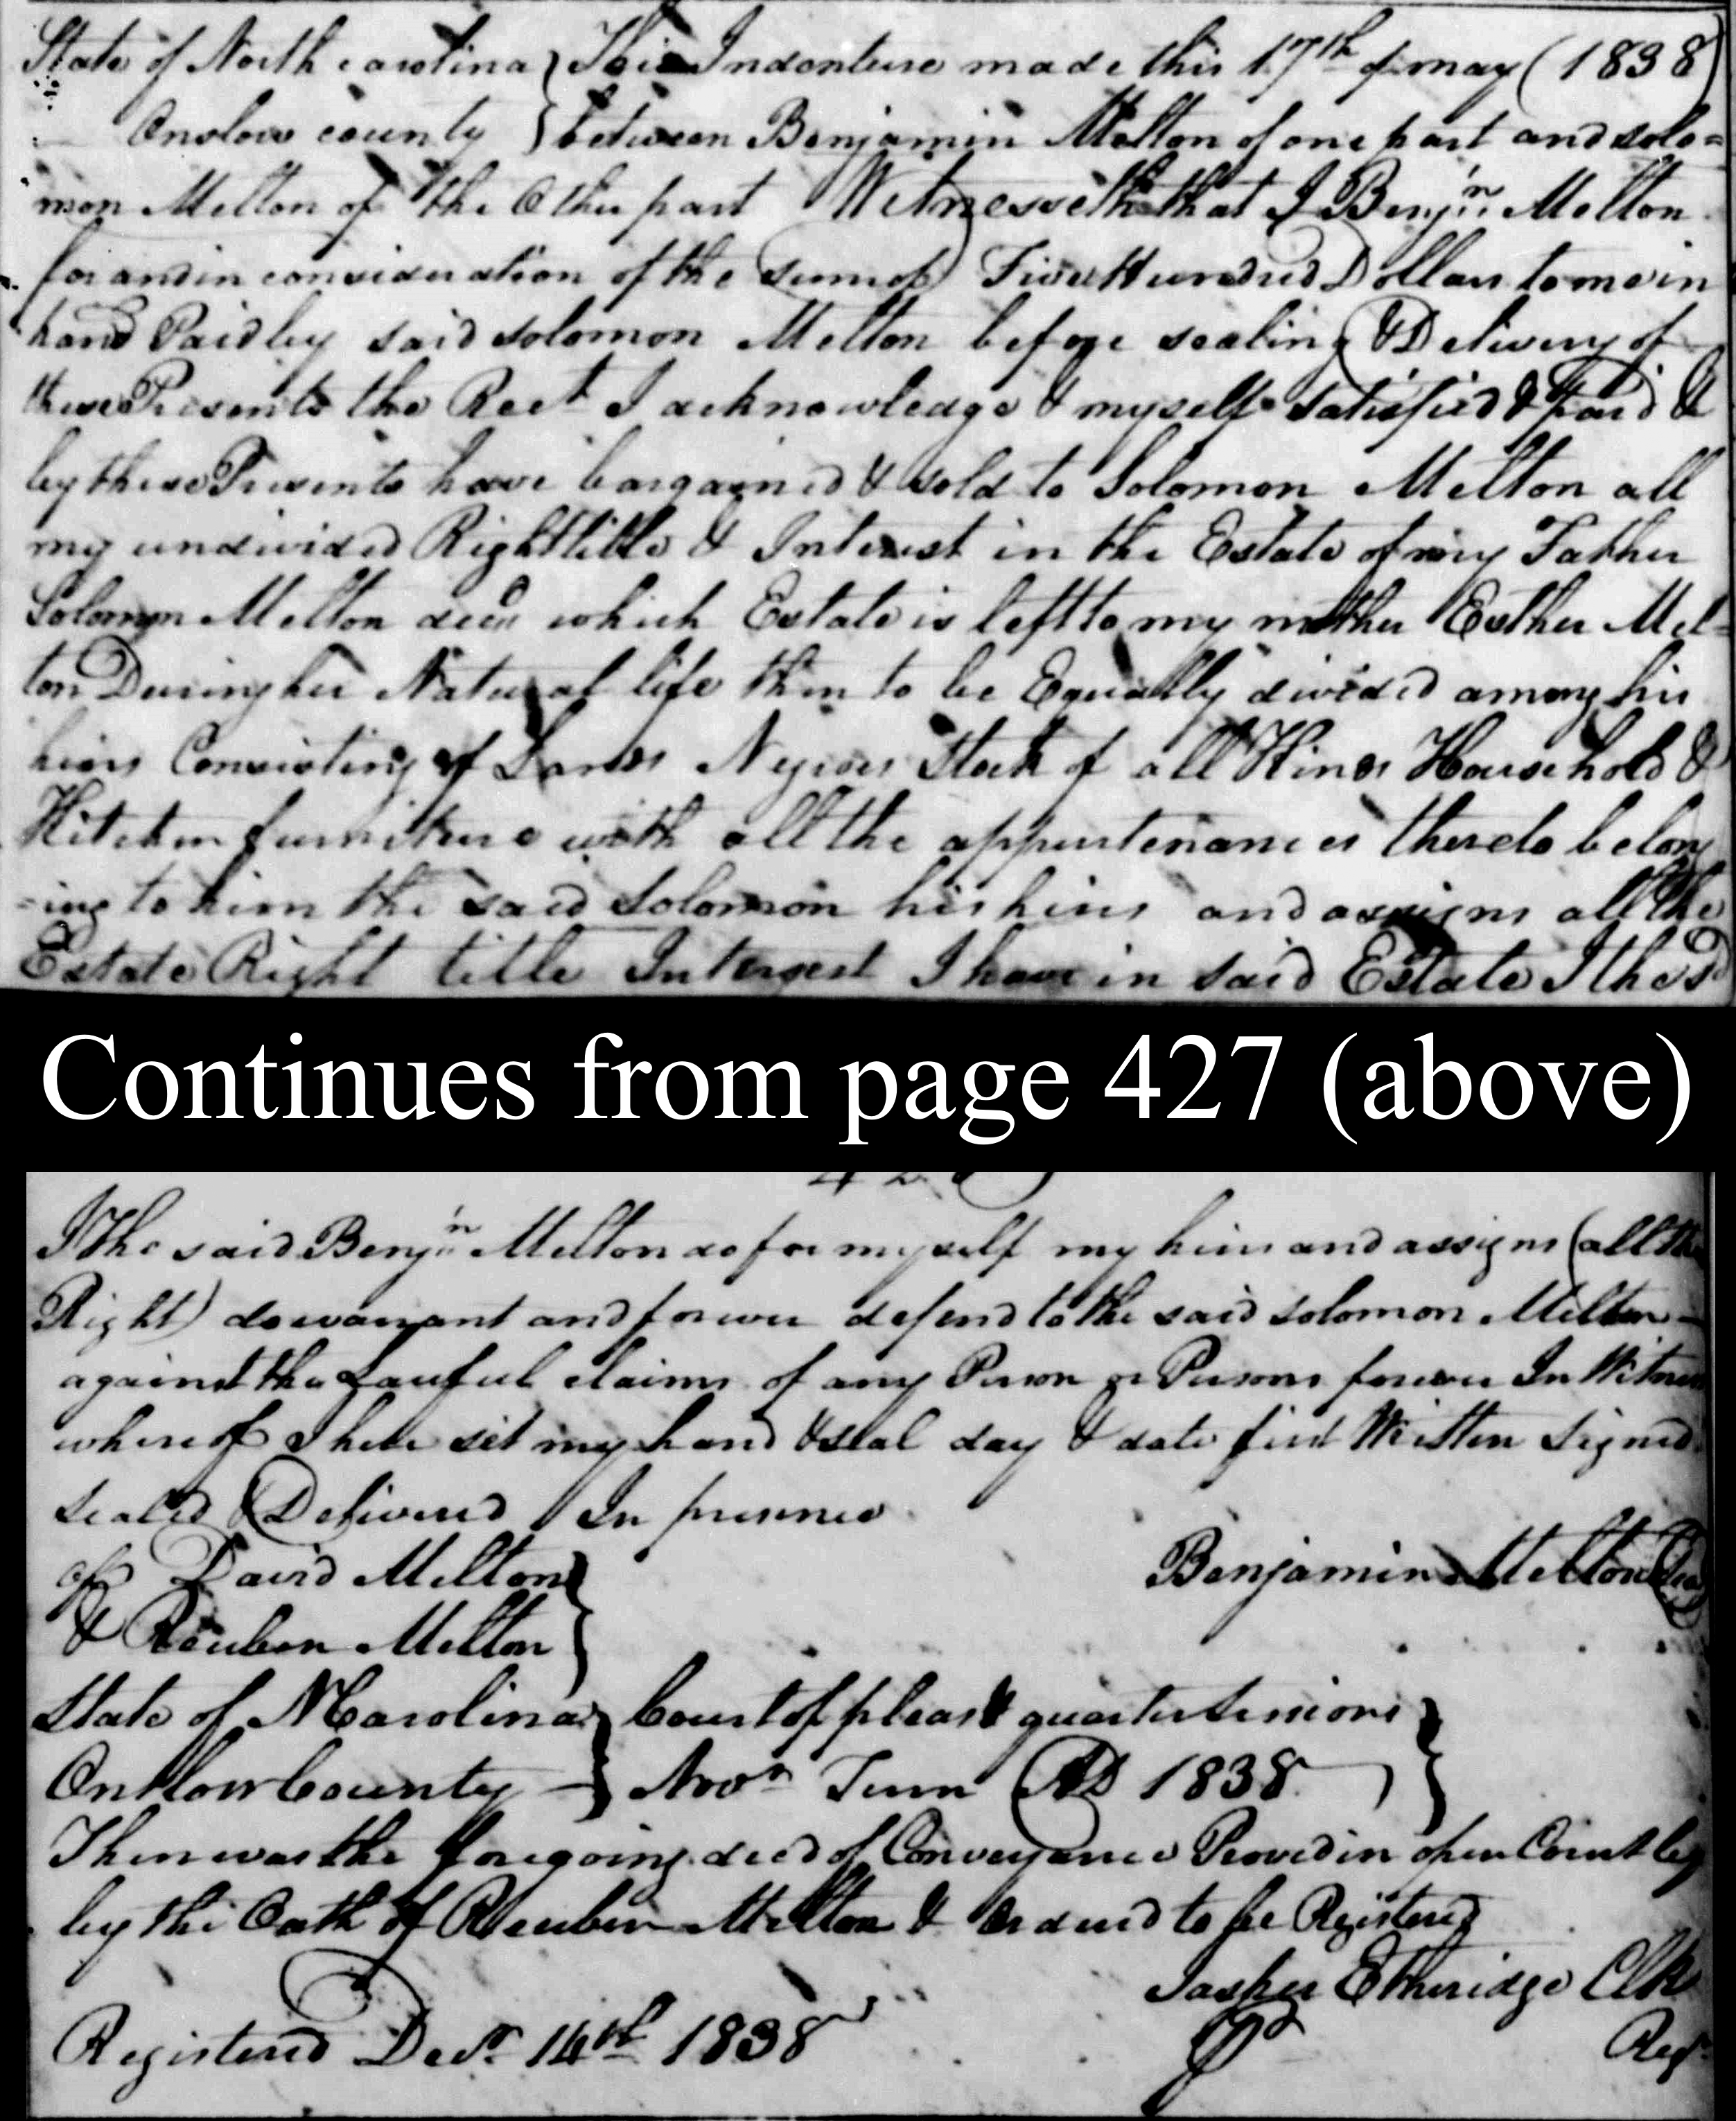 State of North carolina } This Indenture made this 17th of may (1838)
Onslow county } between Benjamin Melton of one part and solo=
mon Melton of the Other part Witnesseth that I Benjn Melton
for and in consideration of the sum of Five Hundred Dollars to me in
hand Paid by said solomon Melton before sealing & Delivery of
these Presents the Rect I acknowledge & myself satisfied & paid &
by these Presents have bargained & sold to Solomon Melton all
my undivided Right title & Interest in the Estate of my Father
Solomon Melton decd which Estate is left to my mother Esther Mel=
ton During her Natural life then to be Equally divided among his
heirs Consisting of Lands Negroes Stock of all Kinds Household &
Kitchen furniture with all the appurtenances thereto belong
=ing to him the said Solomon his heirs and assigns all the
Estate Right title Interest I have in said Estate I the sd
Continues from page 427 (above)
428
I the said Benjn Melton do for myself my heirs and assigns (all the
Right) do warrant and forever defend to the said solomon Melton
against the Lawful claims of any Person or Persons forever In Witness
whereof I here set my hand & seal day & date first Written Signed
sealed & Delivered In presence
of David Melton }
Benjamin Melton Seal
& Reuben Melton }
State of N Carolina } Court of pleas & quarter sessions }
Onslow County } Novr Term AD 1838 }
Then was the foregoing deed of Conveyance Proved in open Court by
by the Oath of Reuben Melton & Ordered to be Registered
Jasper Etheridge Clk
Registered Decr 14th 1838
Regr